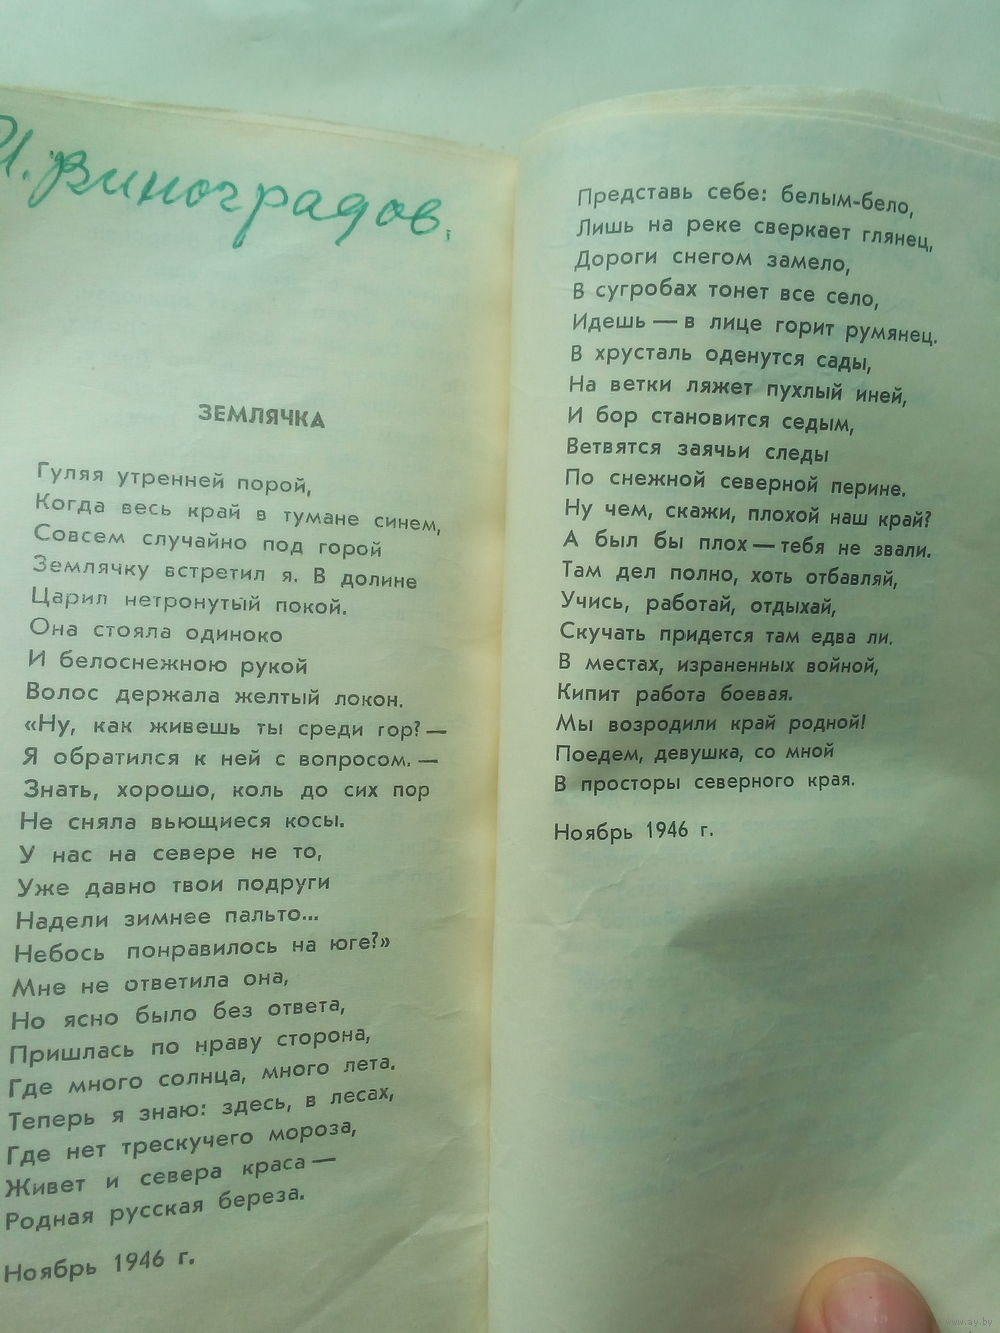 И. Виноградов.
ЗЕМЛЯЧКА
Гуляя утренней порой,
Когда весь край в тумане синем,
Совсем случайно под горой
Землячку встретил я. В долине
Царил нетронутый покой.
Она стояла одиноко
И белоснежною рукой
Волос держала желтый локон.
«Ну, как живешь ты среди гор? —
Я обратился к ней с вопросом. —
Знать, хорошо, коль до сих пор
Не сняла вьющиеся косы.
У нас на севере не то,
Уже давно твои подруги
Надели зимнее пальто...
Небось понравилось на юге?»
Мне не ответила она,
Но ясно было без ответа,
Пришлась по нраву сторона,
Где много солнца, много лета.
Теперь я знаю: здесь, в лесах,
Где нет трескучего мороза,
Живет и севера краса —
Родная русская береза.
Ноябрь 1946 г.
Представь себе: белым-бело,
Лишь на реке сверкает глянец,
Дороги снегом замело,
В сугробах тонет все село,
Идешь — в лице горит румянец.
В хрусталь оденутся сады,
На ветки ляжет пухлый иней,
И бор становится седым,
Ветвятся заячьи следы
По снежной северной перине.
Ну чем, скажи, плохой наш край?
А был бы плох — тебя не звали.
Там дел полно, хоть отбавляй,
Учись, работай, отдыхай,
Скучать придется там едва ли.
В местах, израненных войной,
Кипит работа боевая.
Мы возродили край родной!
Поедем, девушка, со мной
В просторы северного края.
Ноябрь 1946 г.
www.ay.by